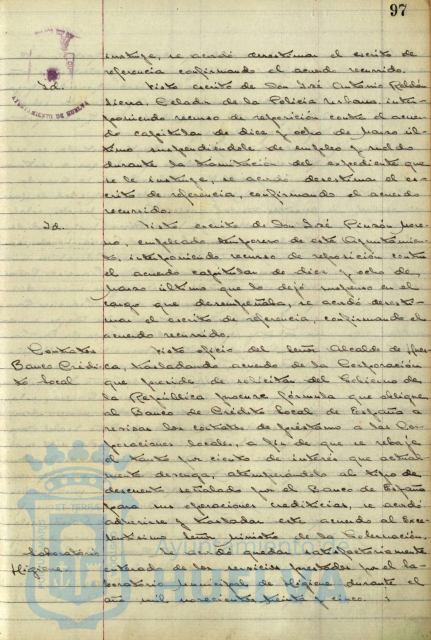 97
instruye, se acordó desestimar el escrito de
referencia confirmando el acuerdo recurrido.
Id. Visto escrito de Don José Antonio Roldán
Sierra, Celador de la Policía Urbana, inter-
poniendo recurso de reposición contra el acuer-
do capitular de diez y ocho de Marzo úl-
timo suspendiéndole de empleo y sueldo
durante la tramitación del expediente que
se le instruye, se acordó desestimar el es-
crito de referencia, confirmando el acuerdo
recurrido.
Id. Visto escrito de Don José Pinzón More-
no, empleado temporero de este Ayuntamien-
to, interponiendo recurso de reposición contra
el acuerdo capitular de diez y ocho de
Marzo último que lo dejó suspenso en el
cargo que desempeñaba, se acordó desesti-
mar el escrito de referencia, confirmando el
acuerdo recurrido.
Contratos Visto oficio del Señor Alcalde de
Banco Crédi- trasladando acuerdo de la Corporación
to Local que preside de solicitar del Gobierno de
la República procure fórmula que obligue
al Banco de Crédito Local de España a
revisar los contratos de préstamo a las Cor-
poraciones locales, a fin de que se rebaje
el tanto por ciento de interés que actual-
mente devenga, atemperándolo al tipo de
descuento señalado por el Banco de España
para sus operaciones crediticias, se acordó
adherirse y trasladar este acuerdo al Exce-
lentísimo Señor Ministro de la Gobernación.
Laboratorio quedar satisfactoriamente
Higiene. enterado de los servicios prestados por el La-
boratorio Municipal de Higiene durante el
año mil novecientos treinta y cinco.
AYUNTAMIENTO DE HUELVA